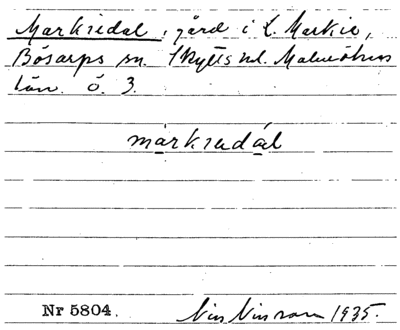 Markiedal, gård i L. Markie,
Bösarps sn. Skytts hd. Malmöhus
län. ö. 3.
markiedál
Nr 5804. 1935.